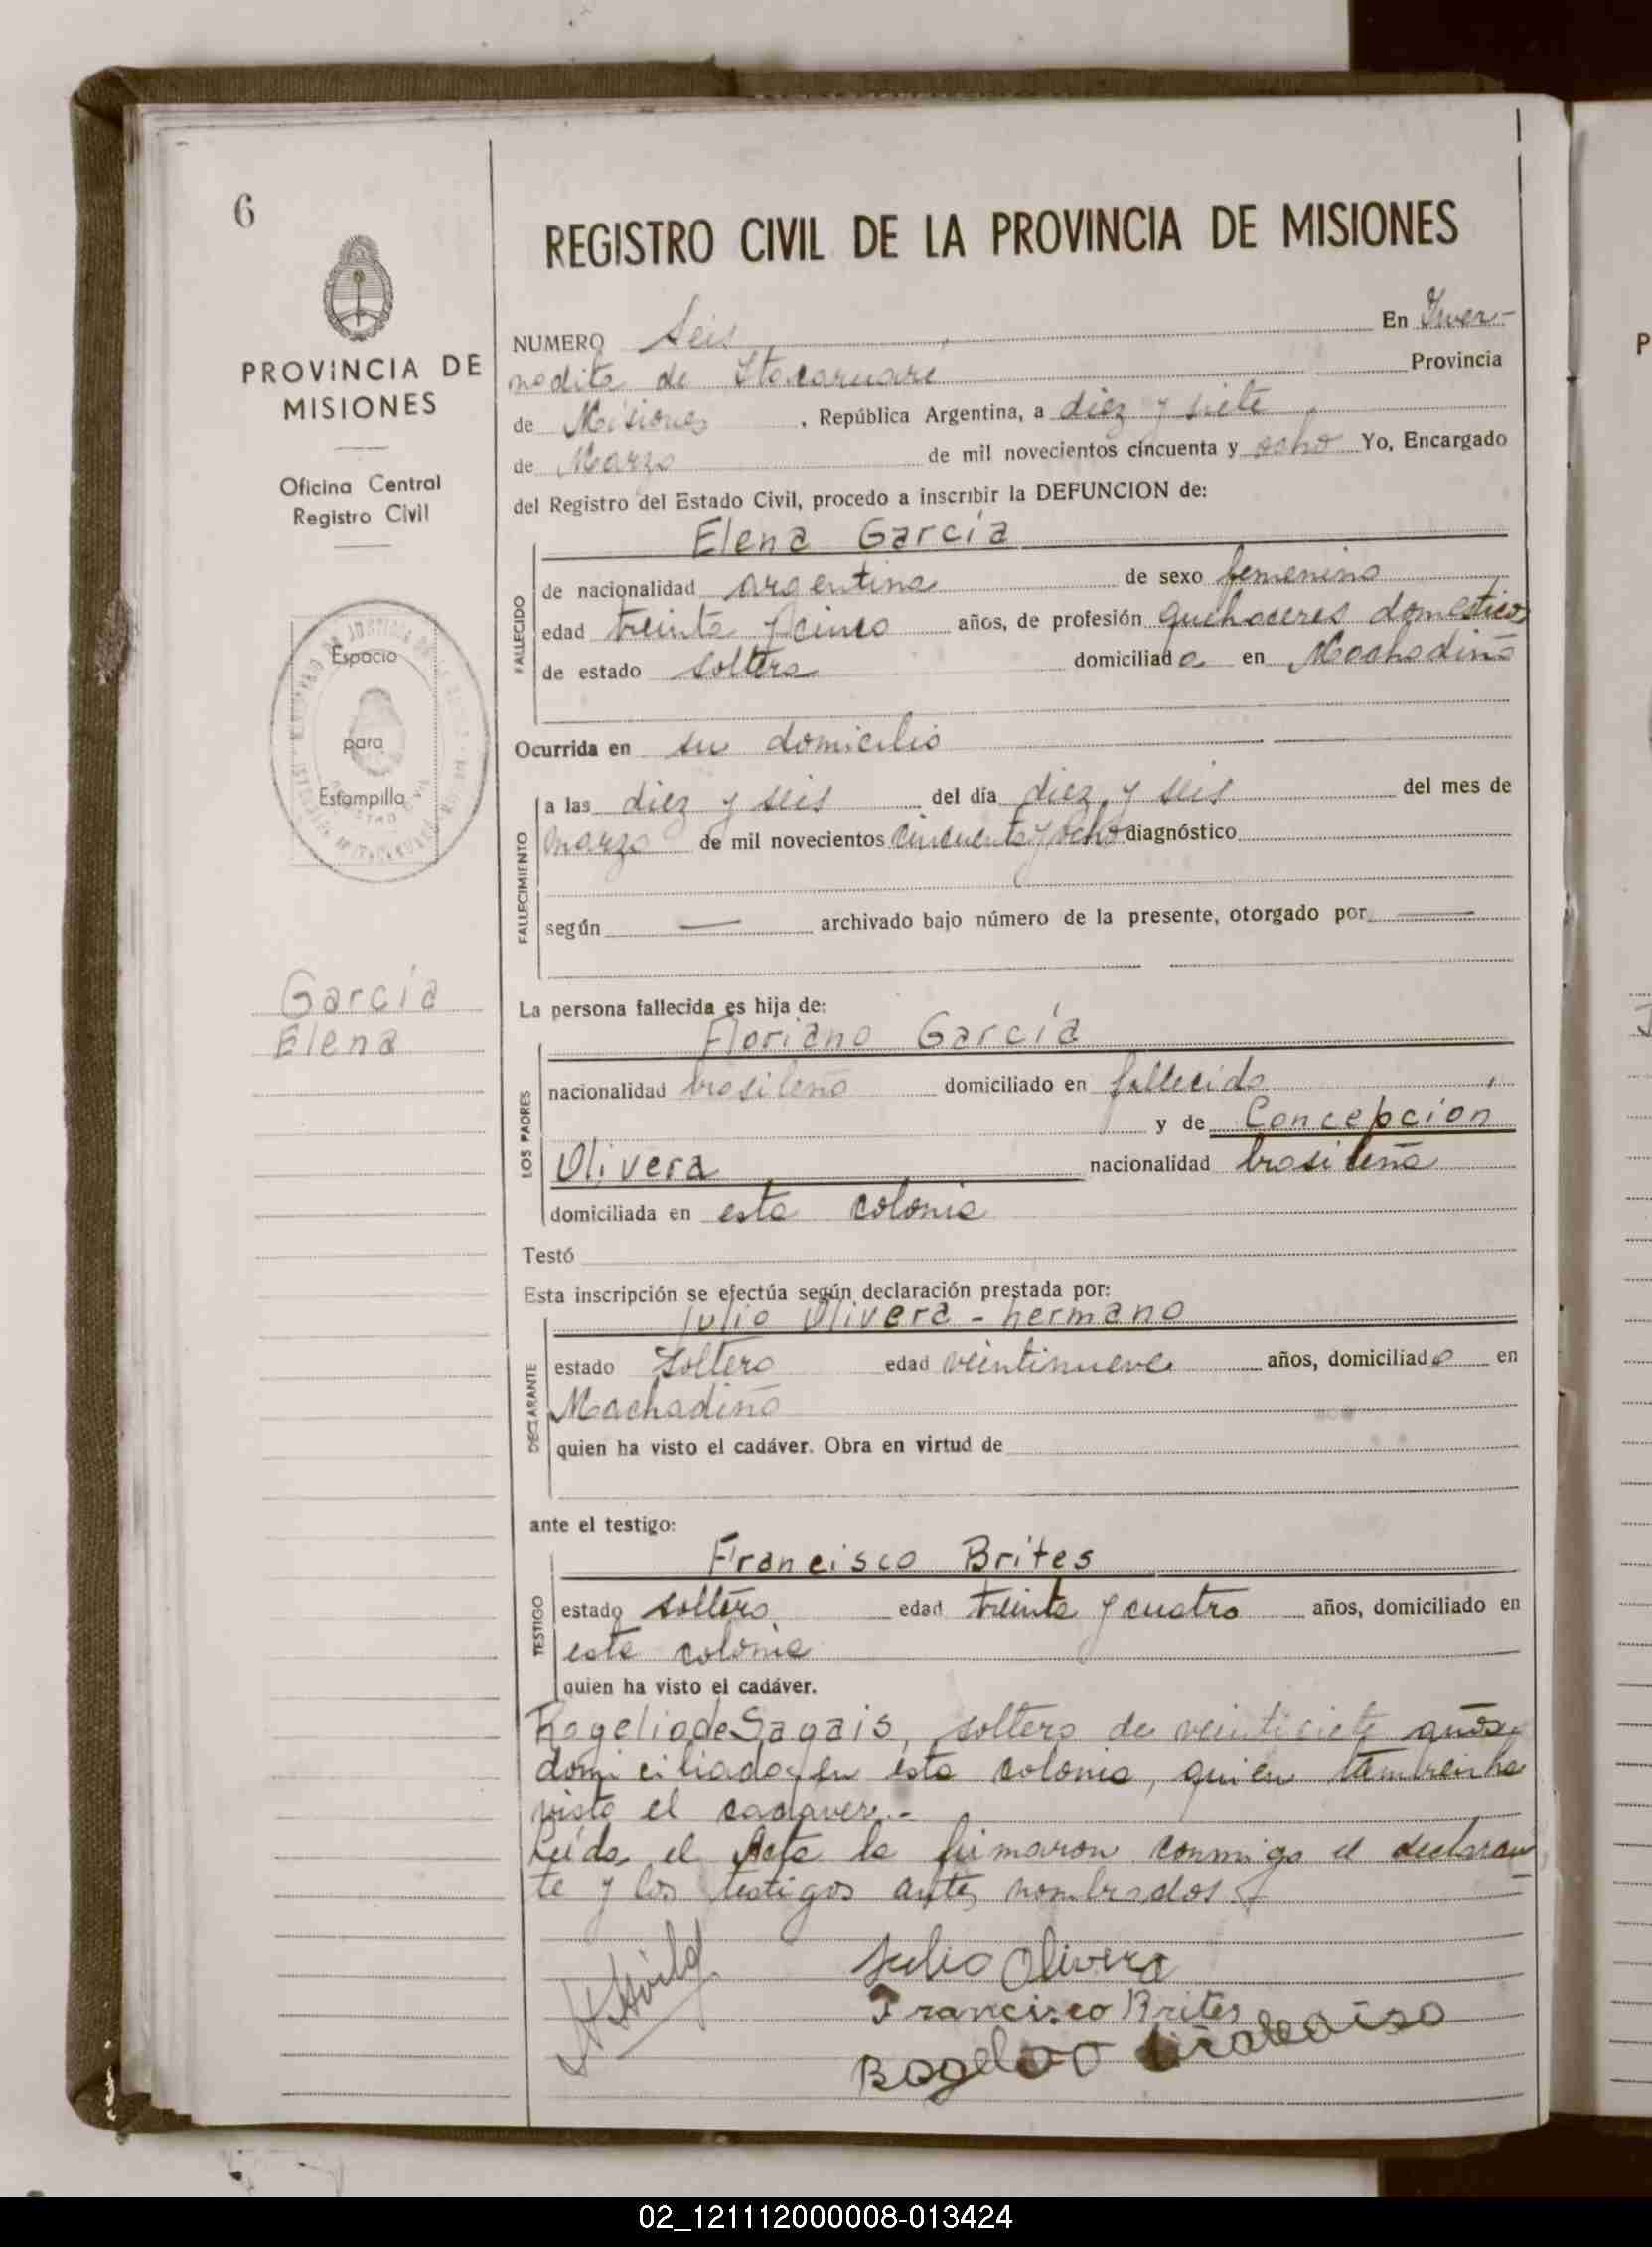 6
REGISTRO CIVIL DE LA PROVINCIA DE MISIONES
PROVINCIA DE
MISIONES
Oficina Central
Registro Civil
Espacio
para
Estampilla
García
Elena
NUMERO Seis En Inver-
nadita de Itacaruaré Provincia
de Misiones, República Argentina, a diez y siete
de Marzo de mil novecientos cincuenta y ocho Yo, Encargado
del Registro del Estado Civil, procedo a inscribir la DEFUNCION de:
Elena García
FALLECIDO
de nacionalidad argentina de sexo femenino
edad treinta y cinco años, de profesión quehaceres domesticos
de estado soltera domiciliada en Machadiño
Ocurrida en su domicilio
FALLECIMIENTO
a las diez y seis del día diez y seis del mes de
marzo de mil novecientos cincuenta y ocho diagnóstico
según — archivado bajo número de la presente, otorgado por —
La persona fallecida es hija de:
Floriano García
LOS PADRES
nacionalidad brasileño domiciliado en fallecido,
y de Concepción
Olivera nacionalidad brasileña
domiciliada en esta colonia
Testó
Esta inscripción se efectúa según declaración prestada por:
Julio Olivera - hermano
DECLARANTE
estado soltero edad veintinueve años, domiciliado en
Machadiño
quien ha visto el cadáver. Obra en virtud de
ante el testigo:
Francisco Brites
TESTIGO
estado soltero edad treinta y cuatro años, domiciliado en
esta colonia
quien ha visto el cadáver.
Rogelio de , soltero de veintisiete años
domiciliado en esta colonia, quien tambien ha
visto el cadaver.-
Leída el Acta la firmaron conmigo el declaran
te y los testigos antes nombrados
Julio Olivera
Francisco Brites
02_121112000008-013424